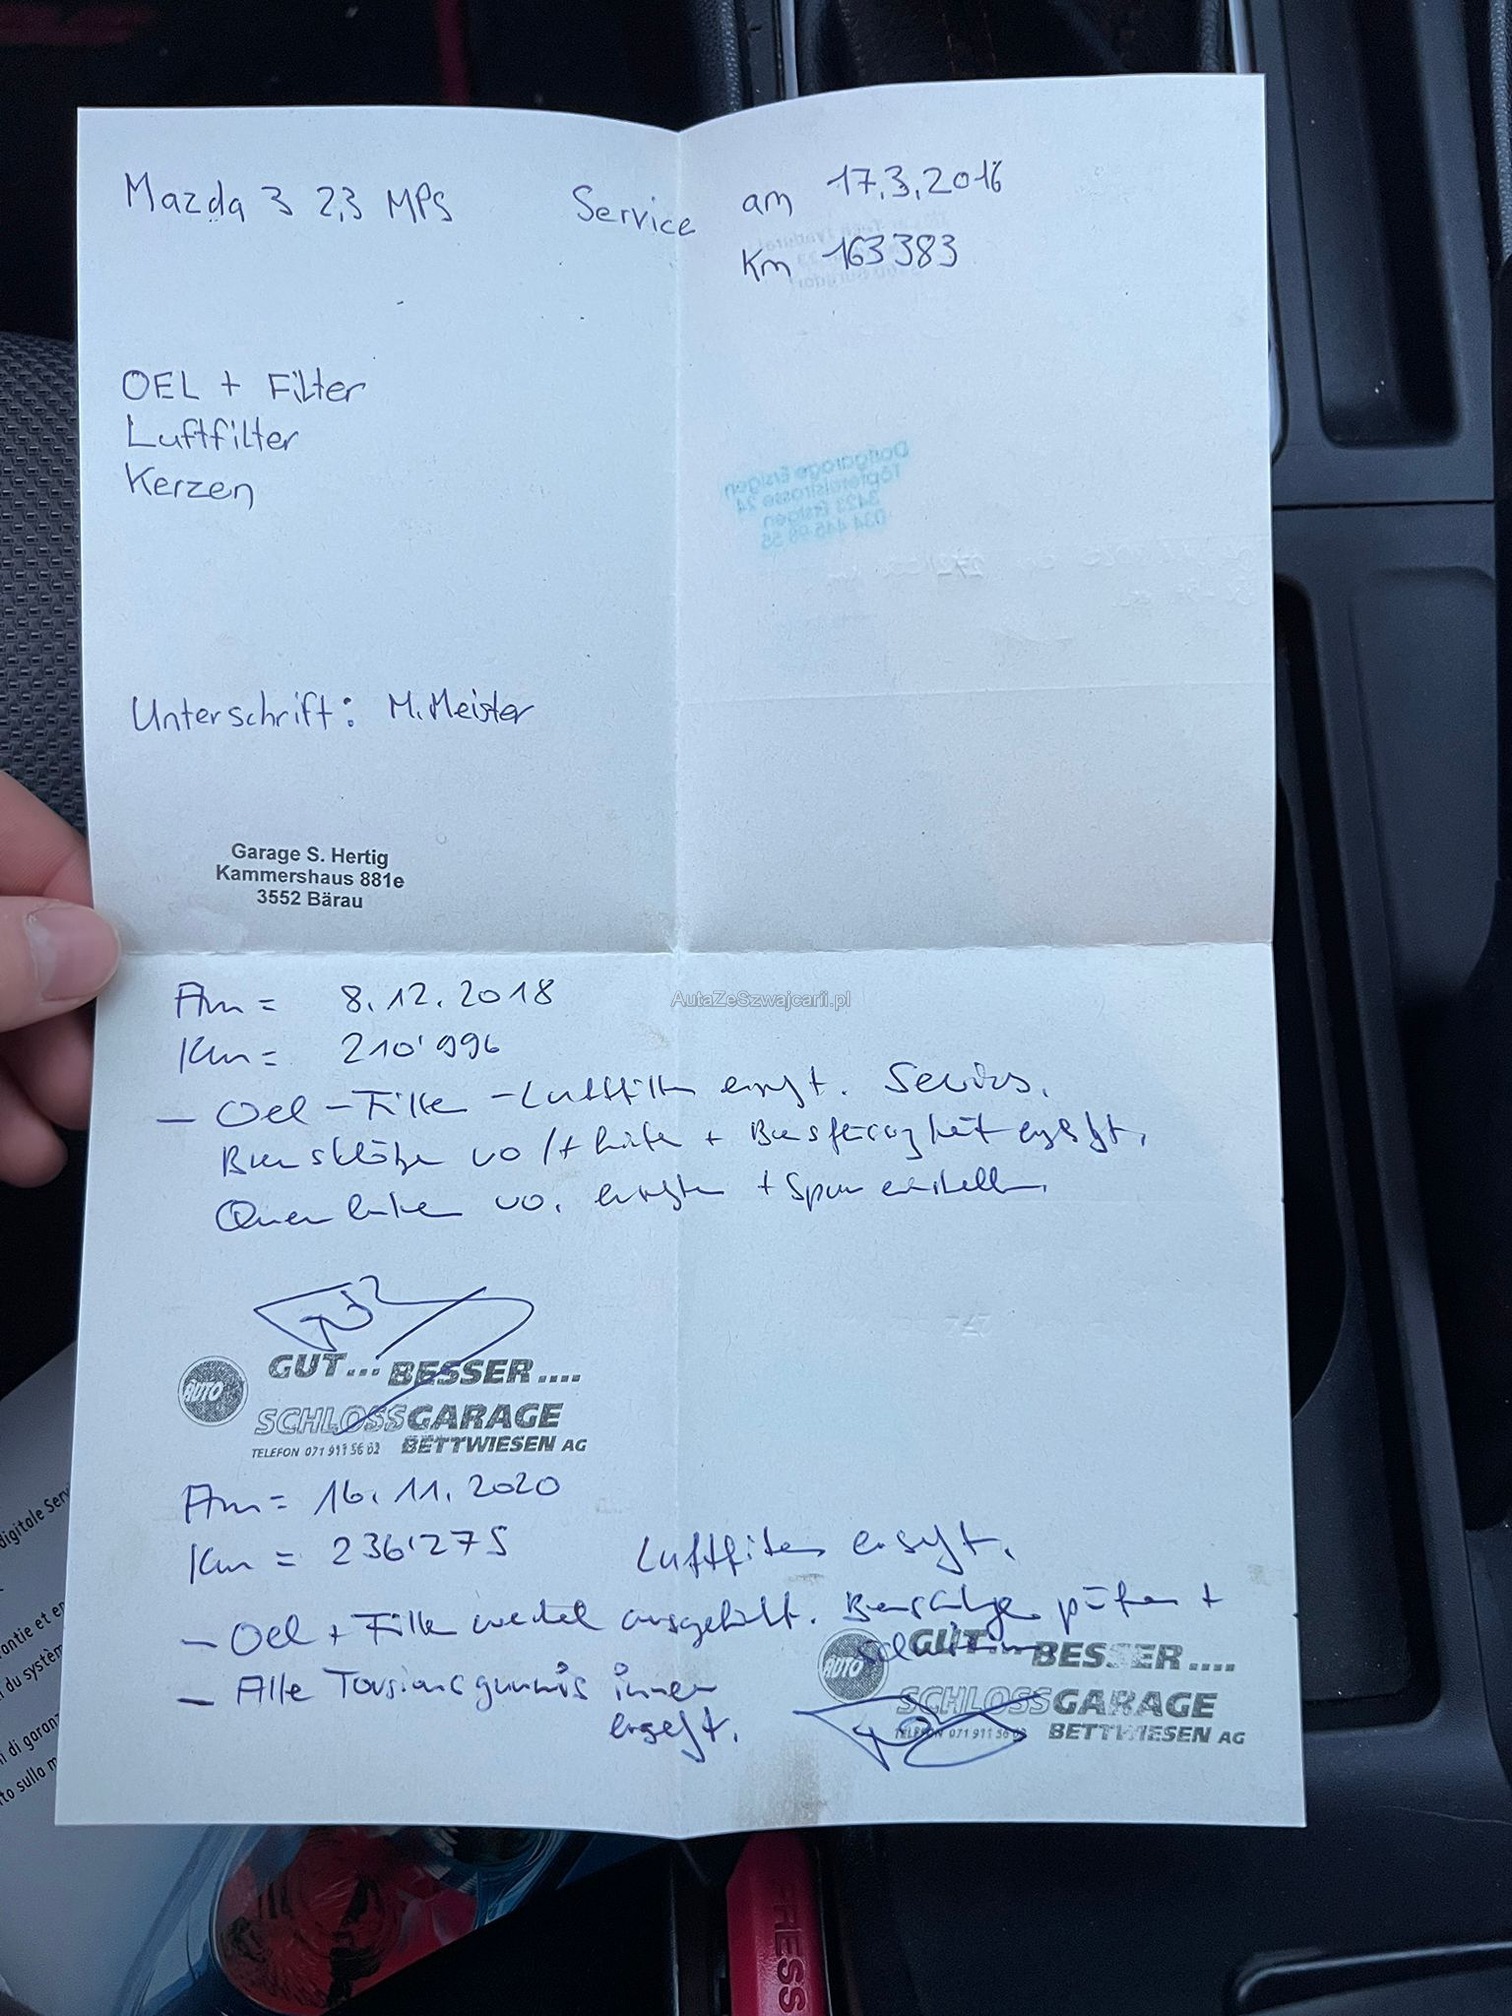 Mazda 3 2,3 MPS Service am 17.3.2016
Km 163383
OEL + Filter
Luftfilter
Kerzen
Dorfgarage Ersigen
3423 Ersigen
Unterschrift: M.Meister
Garage S. Hertig
Kammershaus 881e
3552 Bärau
AutaZeSzwajcarii.pl
Am = 8.12.2018
Km = 210'996
- Oel - Filter - Luftfilter ersezt. Service.
Bremsklötze vo / + hinten + Bremsflüssigkeit ersezt.
Querlenker vo. ersezten + Spur einstellen.
GUT... BESSER....
AUTO
SCHLOSSGARAGE
TELEFON 071 911 56 02 BETTWIESEN AG
Am = 16.11.2020
Km = 236'275 Luftfilter ersezt.
- Oel + Filter wechsel ausgeführt. Bremsanlage prüfen +
GUT... BESSER....
AUTO
- Alle Torsionsgummis innen
SCHLOSSGARAGE
ersezt.
TELEFON 071 911 56 02 BETTWIESEN AG
digitale Serv
antie et en
du systèm
di garanz
to sulla m
PRESS